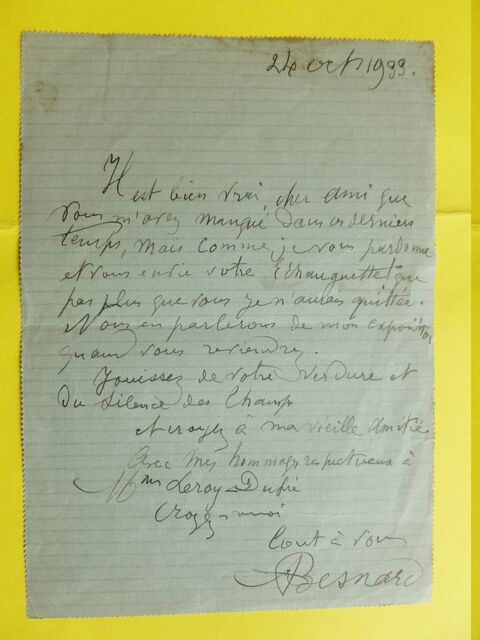 24 oct 1933.
Il est bien vrai, cher ami que
vous m'avez manqué dans ces derniers
temps, mais comme je vous pardonne
et vous envie votre Echauguette que
pas plus que vous je n'aurais quittée.
Nous en parlerons de mon exposition
quand vous reviendrez.
Jouissez de votre verdure et
Du silence des champs
et croyez à ma vieille amitié.
Avec mes hommages respectueux à
Mme Leroy-Dufré
Croyez-moi
tout à vous
ABesnard